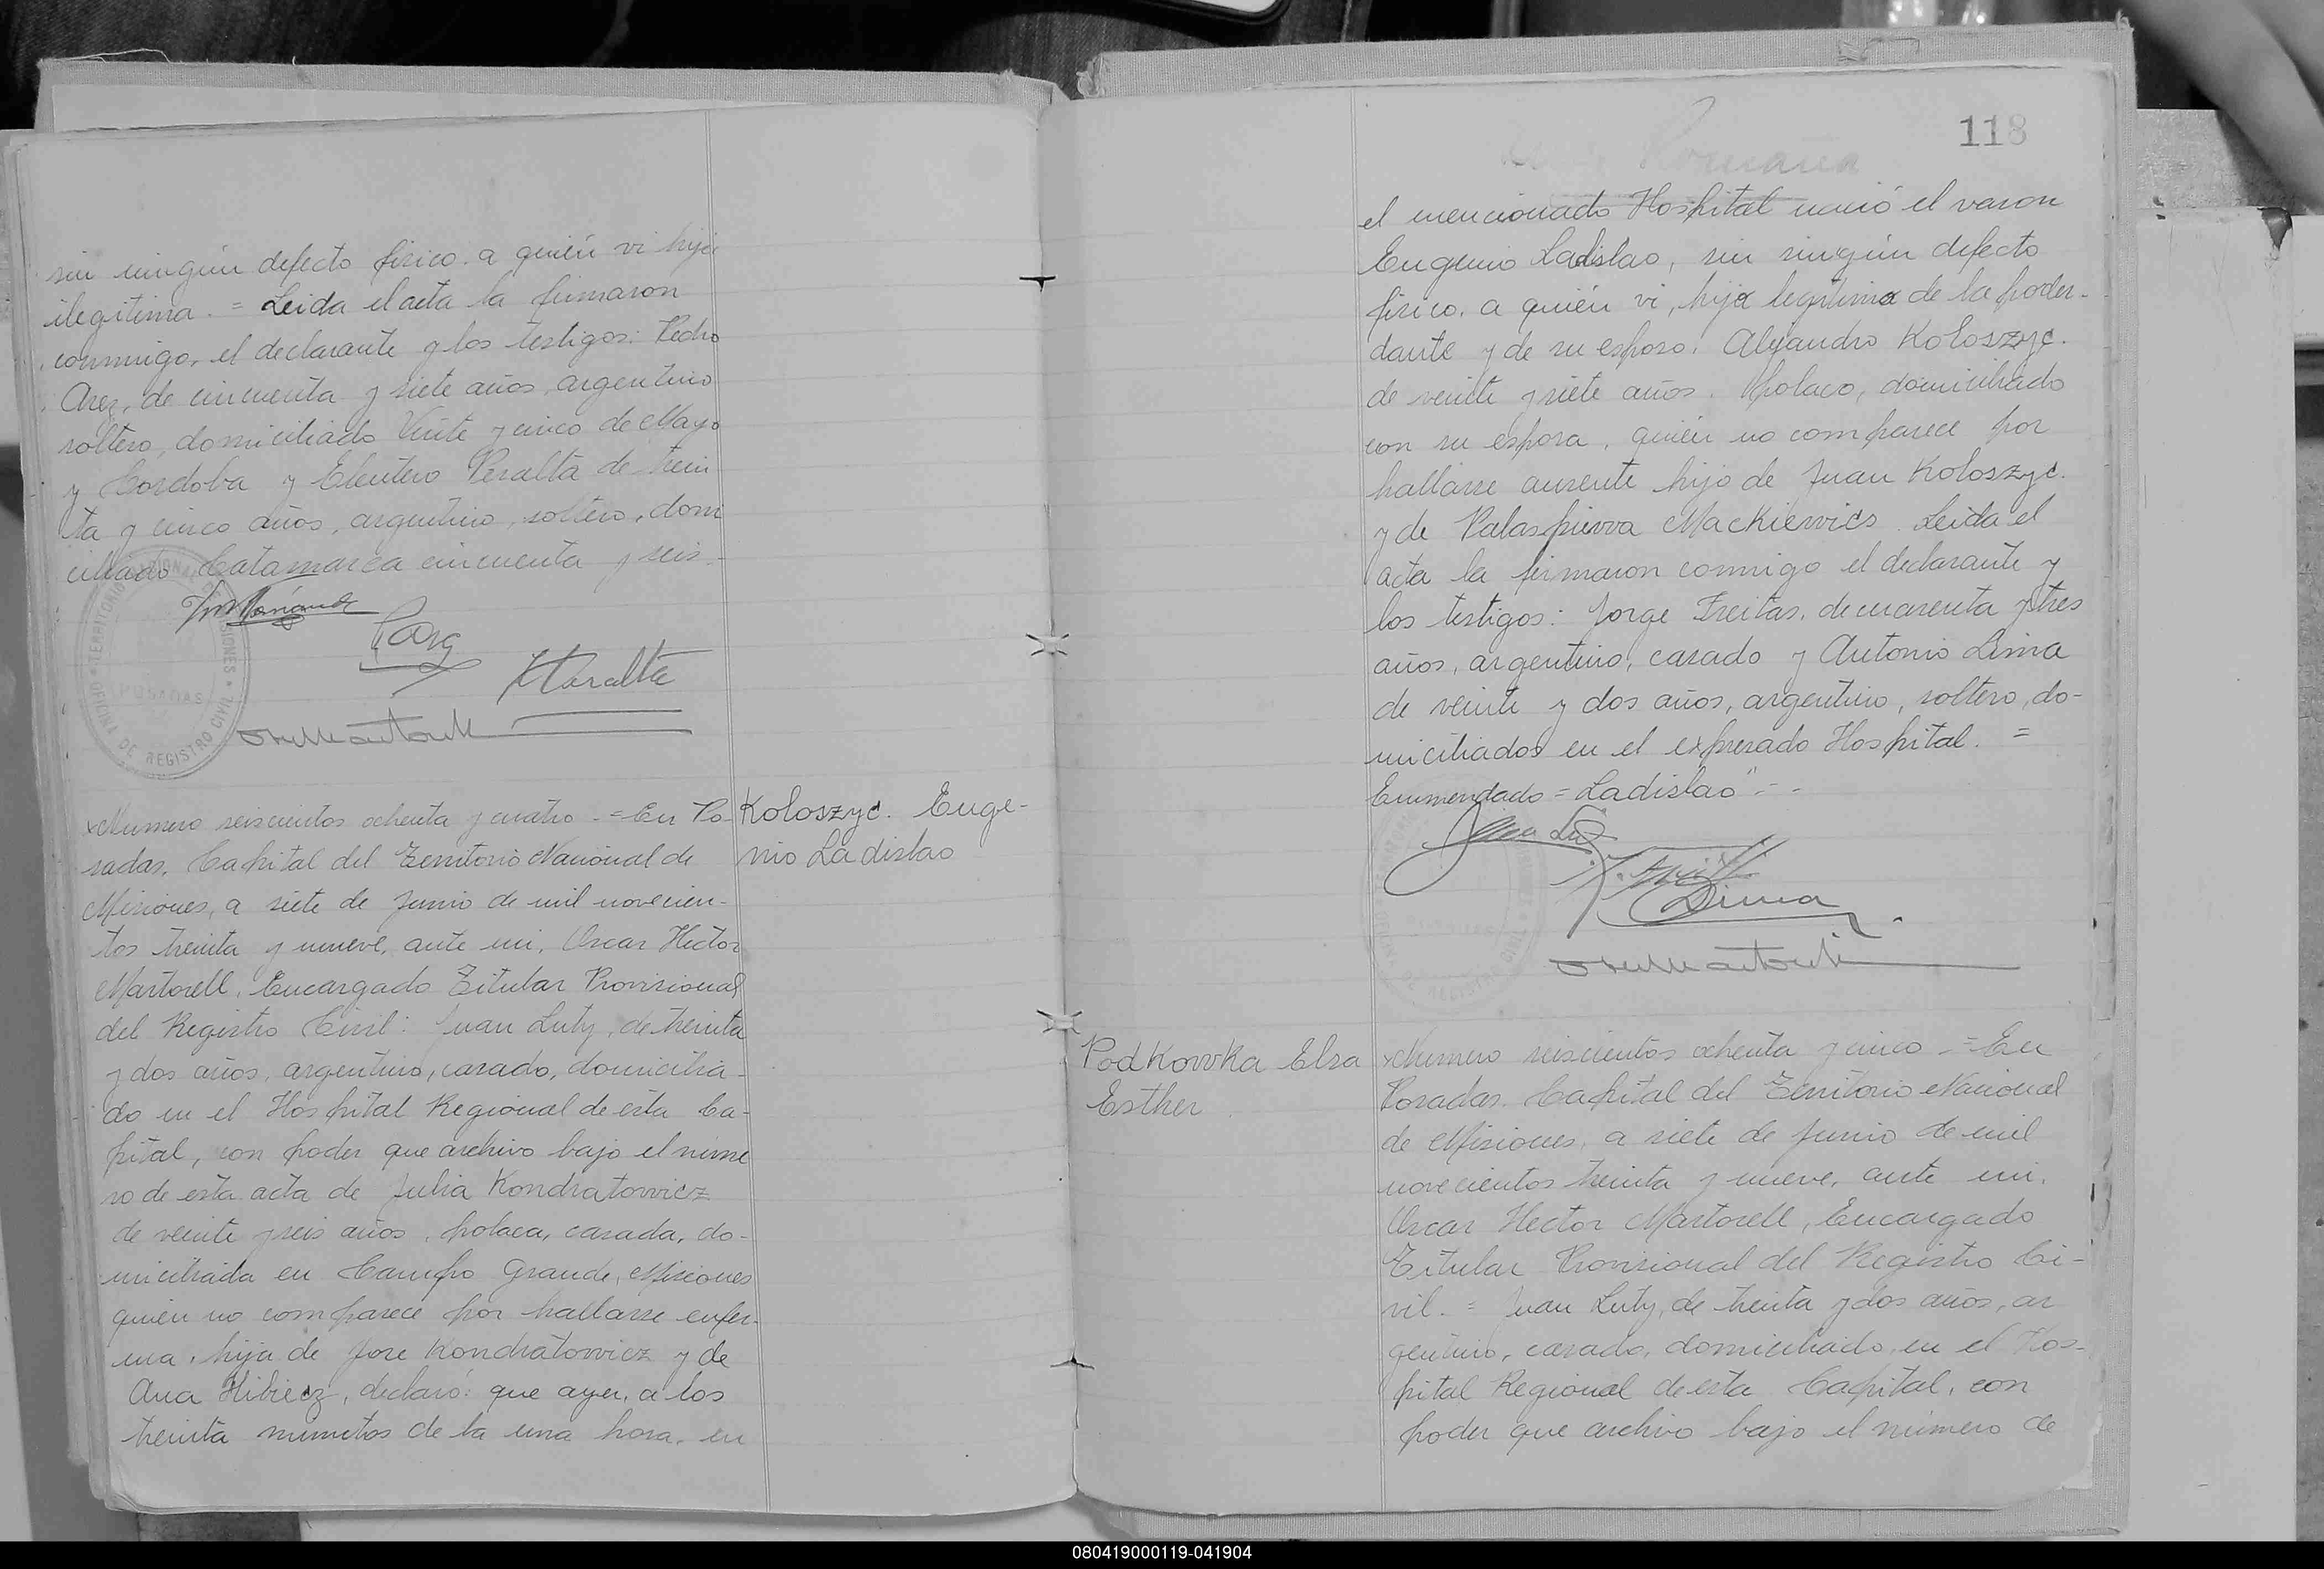 sin ningún defecto fisico. a quién vi hija
ilegitima. = Leida el acta la firmaron
conmmigo, el declarante y los testigos: Pedro
Arez, de cincuenta y siete años, argentino
soltero, domiciliado Veinte y cinco de Mayo
y Cordoba y Eleutero Peralta de trein
ta y cinco años, argentino, soltero, domi
ciliado Catamarca cincuenta y seis-
TERRITORIO NACIONAL DE MISIONES
POSADAS
OFICINA DE REGISTRO CIVIL
Numero seiscientos ochenta y cuatro - = En Po
sadas, Capital del Territorio Nacional de
Misiones, a siete de Junio de mil novecien-
tos treinta y nueve, ante mi, Oscar Hector
Martorell, Encargado Titular Provisional
del Registro Civil: Juan Luty, de treinta
y dos años, argentino, casado, domicilia-
do en el Hospital Regional de esta Ca-
pital, con poder que archivo bajo el núme
ro de esta acta de Julia Kondratowicz
de veinte y seis años, polaca, casada, do-
miciliada en Campo Grande, Misiones
quien no comparece por hallarse enfer-
ma, hija de Jose Kondratowicz y de
Ana Hibiecz, declaró: que ayer, a los
treinta minutos de la una hora, en
Koloszyc. Euge-
nio Ladislao
118
el mencionado Hospital nació el varon
Eugenio Ladislao, sin ningún defecto
fisico, a quién vi, hijo legitimo de la poder-
dante y de su esposo, Alejandro Koloszyc.
de veinte y siete años. polaco, domiciliado
con su esposa, quién no comparece por
hallarse ausente hijo de Juan Koloszyc.
y de Palaspiuva Mackiewics. Leida el
acta la firmaron conmigo el declarante y
los testigos: Jorge Freitas, de cuarenta y tres
años, argentino, casado y Antonio Lima
de veinte y dos años, argentino, soltero, do-
miciliados en el expresado Hospital. =
Enmendado = Ladislao" = -
Podkowka Elsa
Esther
Numero seiscientos ochenta y cinco - = En
Posadas. Capital del Territorio Nacional
de Misiones, a siete de Junio de mil
novecientos treinta y nueve, ante mi,
Oscar Hector Martorell, Encargado
Titular Provisional del Registro Ci-
vil. = Juan Luty, de treinta y dos años, ar
gentino, casado, domiciliado, en el Hos-
pital Regional de esta Capital, con
poder que archivo bajo el número de
080419000119-041904